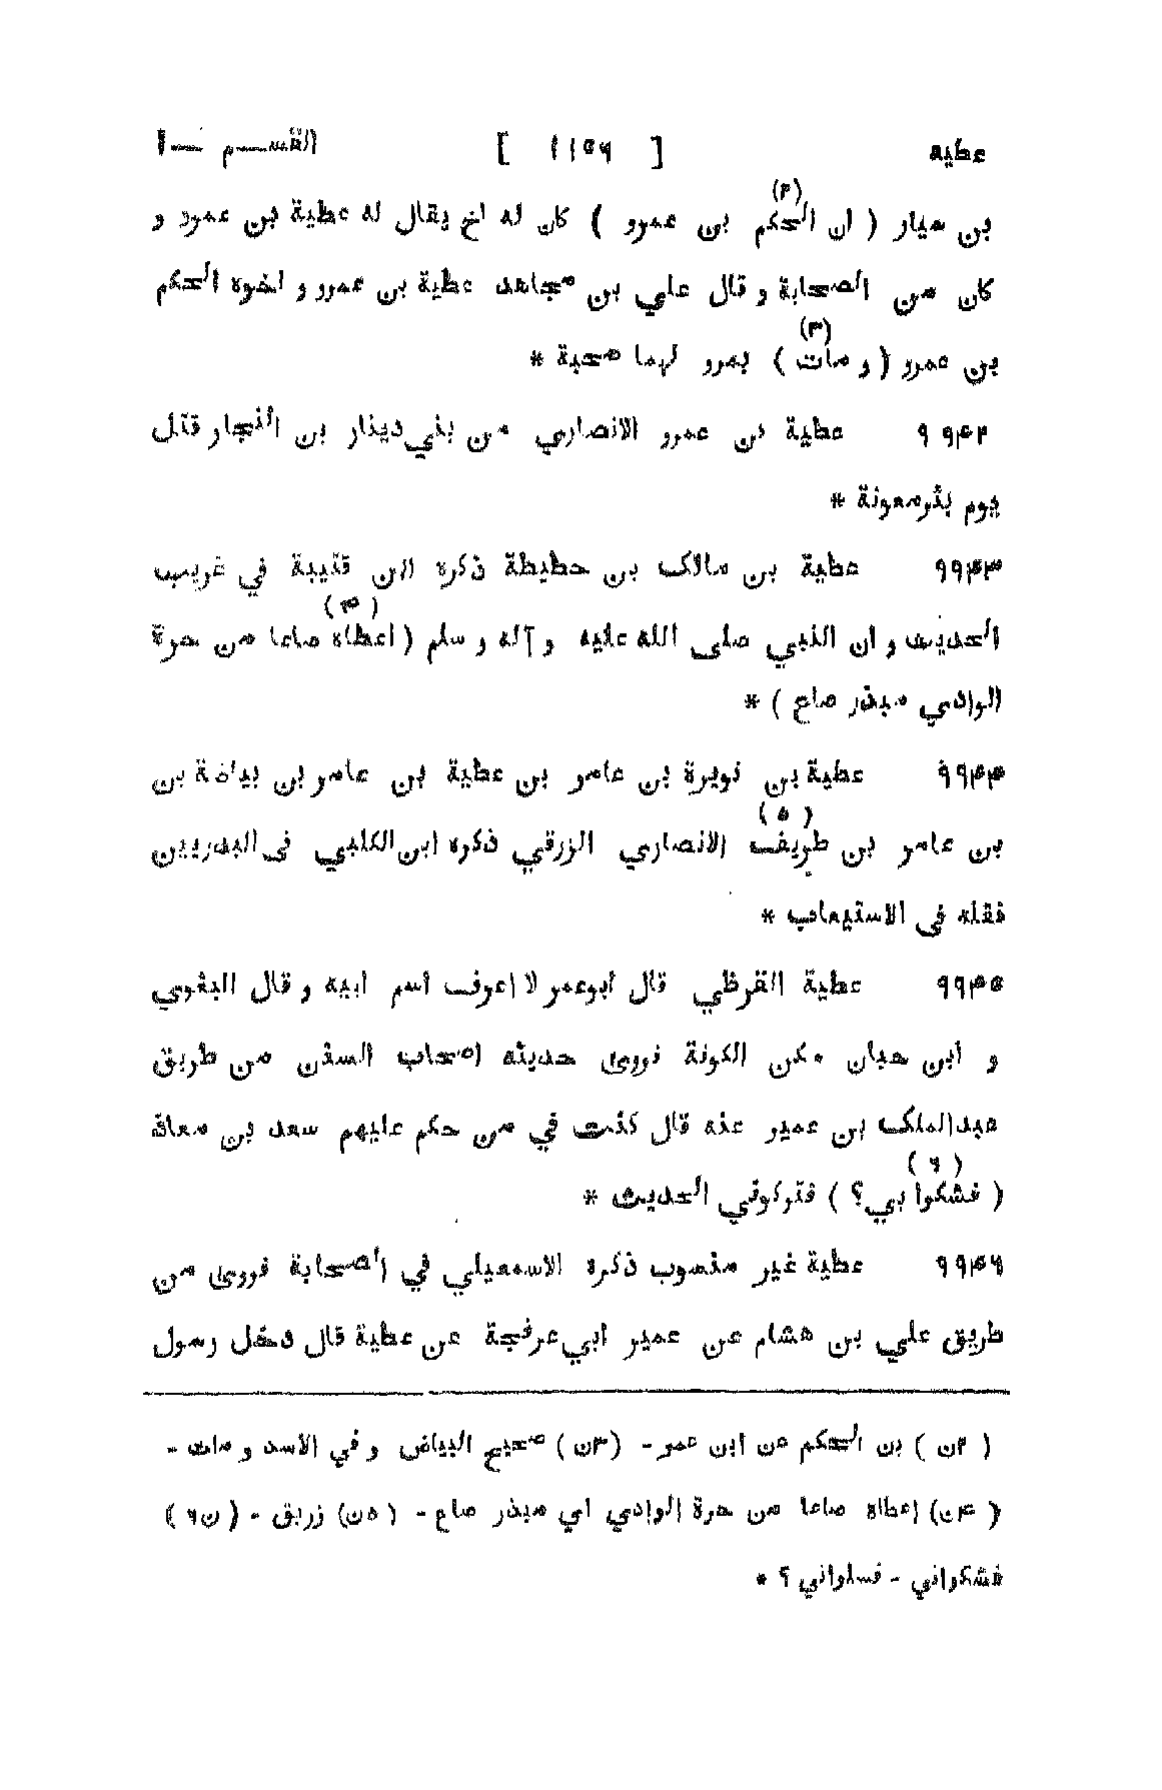 عطيه [ ١١٥٦ ] القسم — ١
بن سيار ( ان الحكم (٢) بن عمرو ) كان له اخ يقال له عطية بن عمرو و
كان من الصحابة و قال علي بن مجاهد عطية بن عمرو و اخوه الحكم
بن عمرو ( و مات (٣) ) بمرو لهما صحبة *
٩٩۴٢ عطية بن عمرو الانصاري من بني دينار بن النجار قتل
يوم بئر معونة *
٩٩۴٣ عطية بن مالك بن حطيطة ذكره ابن قتيبة في غريب
الحديث و ان النبي صلى الله عليه و آله و سلم ( اعطاه (۴) صاعا من حرة
الوادي مبذر صاع ) *
٩٩۴۴ عطية بن نويرة بن عامر بن عطية بن عامر بن بياضة بن
بن عامر بن طريف (٥) الانصاري الزرقي ذكره ابن الكلبي فى البدريين
نقله فى الاستيعاب *
٩٩۴٥ عطية القرظي قال ابوعمر لا اعرف اسم ابيه و قال البغوي
و ابن حبان سكن الكوفة فروى حديثه اصحاب السنن من طريق
عبدالملك بن عمير عنه قال كنت في من حكم عليهم سعد بن معاذ
( فشكوا بي؟ (٦) ) فتركوني الحديث *
٩٩۴٦ عطية غير منصوب ذكره الاسمعيلي في الصحابة فروى من
طريق علي بن هشام عن عمير ابي عرفجة عن عطية قال دخل رسول
( ٢ن ) بن الحكم عن ابن عمر - (٣ن ) صحيح البياض و في الاسد و مات -
( ۴ن) اعطاه صاعا من حرة الوادي اي مبذر صاع - ( ٥ن) زريق - ( ن٦ )
فشكواني - فسلواني ؟ *